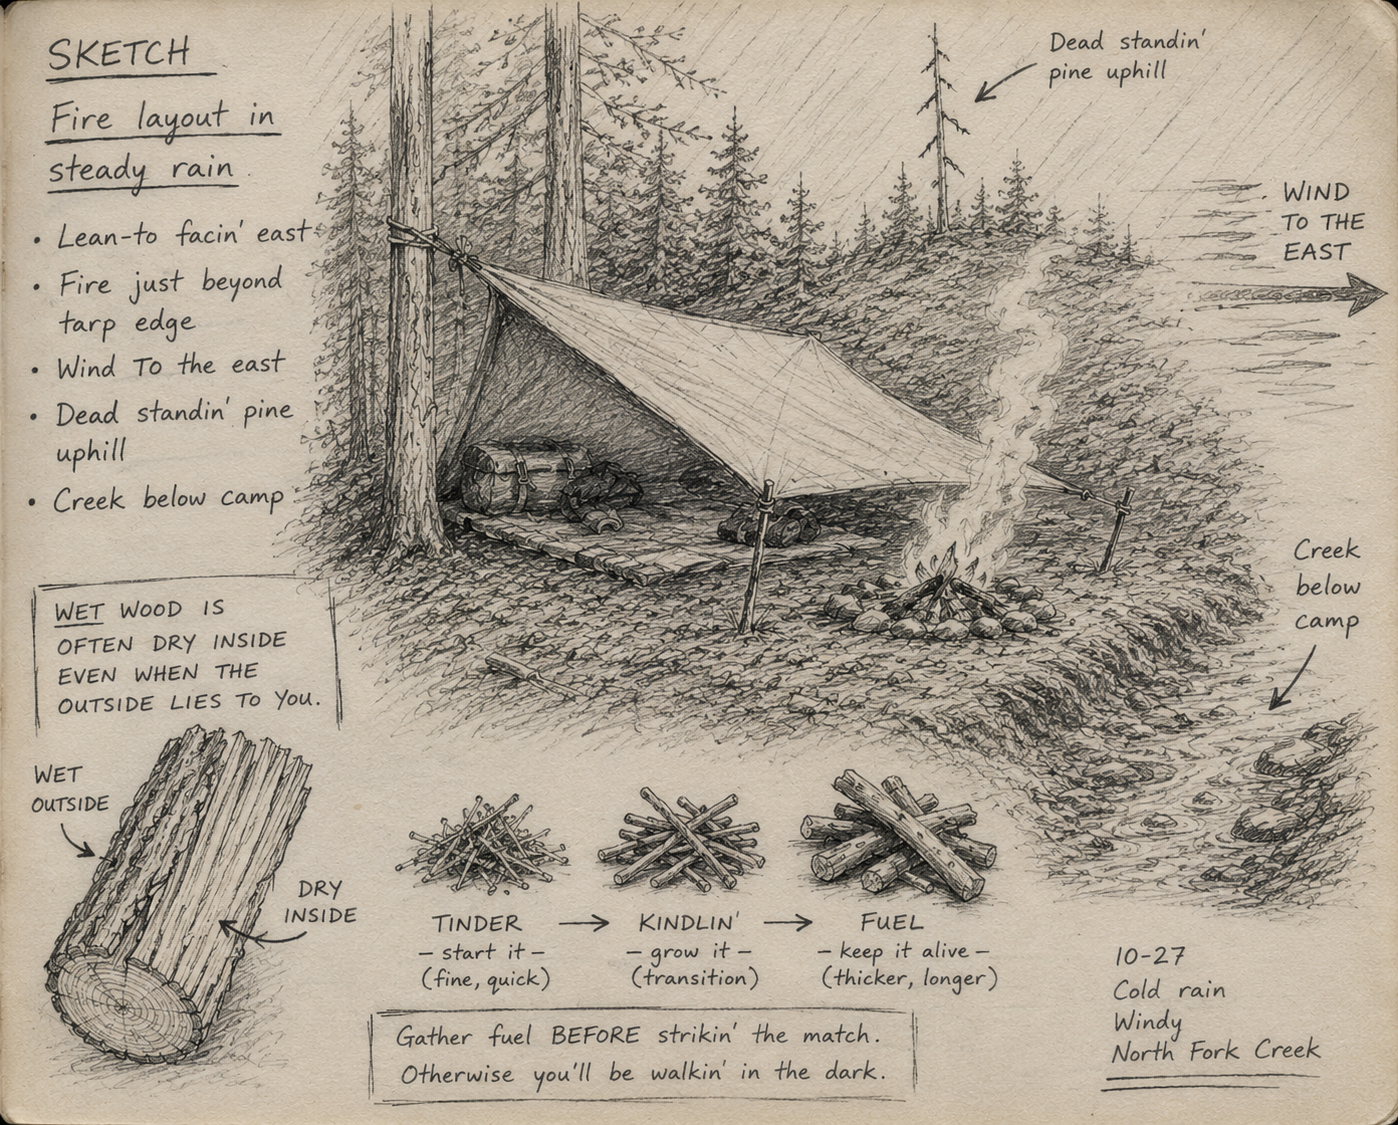 SKETCH
Fire layout in
steady rain.
• Lean-to facin' east
• Fire just beyond
tarp edge
• Wind To the east
• Dead standin' pine
uphill
• Creek below camp
Dead standin'
pine uphill
WIND
TO THE
EAST
Creek
below
camp
WET WOOD IS
OFTEN DRY INSIDE
EVEN WHEN THE
OUTSIDE LIES TO YOU.
WET
OUTSIDE
DRY
INSIDE
TINDER → KINDLIN' → FUEL
– start it – – grow it – – keep it alive –
(fine, quick) (transition) (thicker, longer)
Gather fuel BEFORE strikin' the match.
Otherwise you'll be walkin' in the dark.
10-27
Cold rain
Windy
North Fork Creek